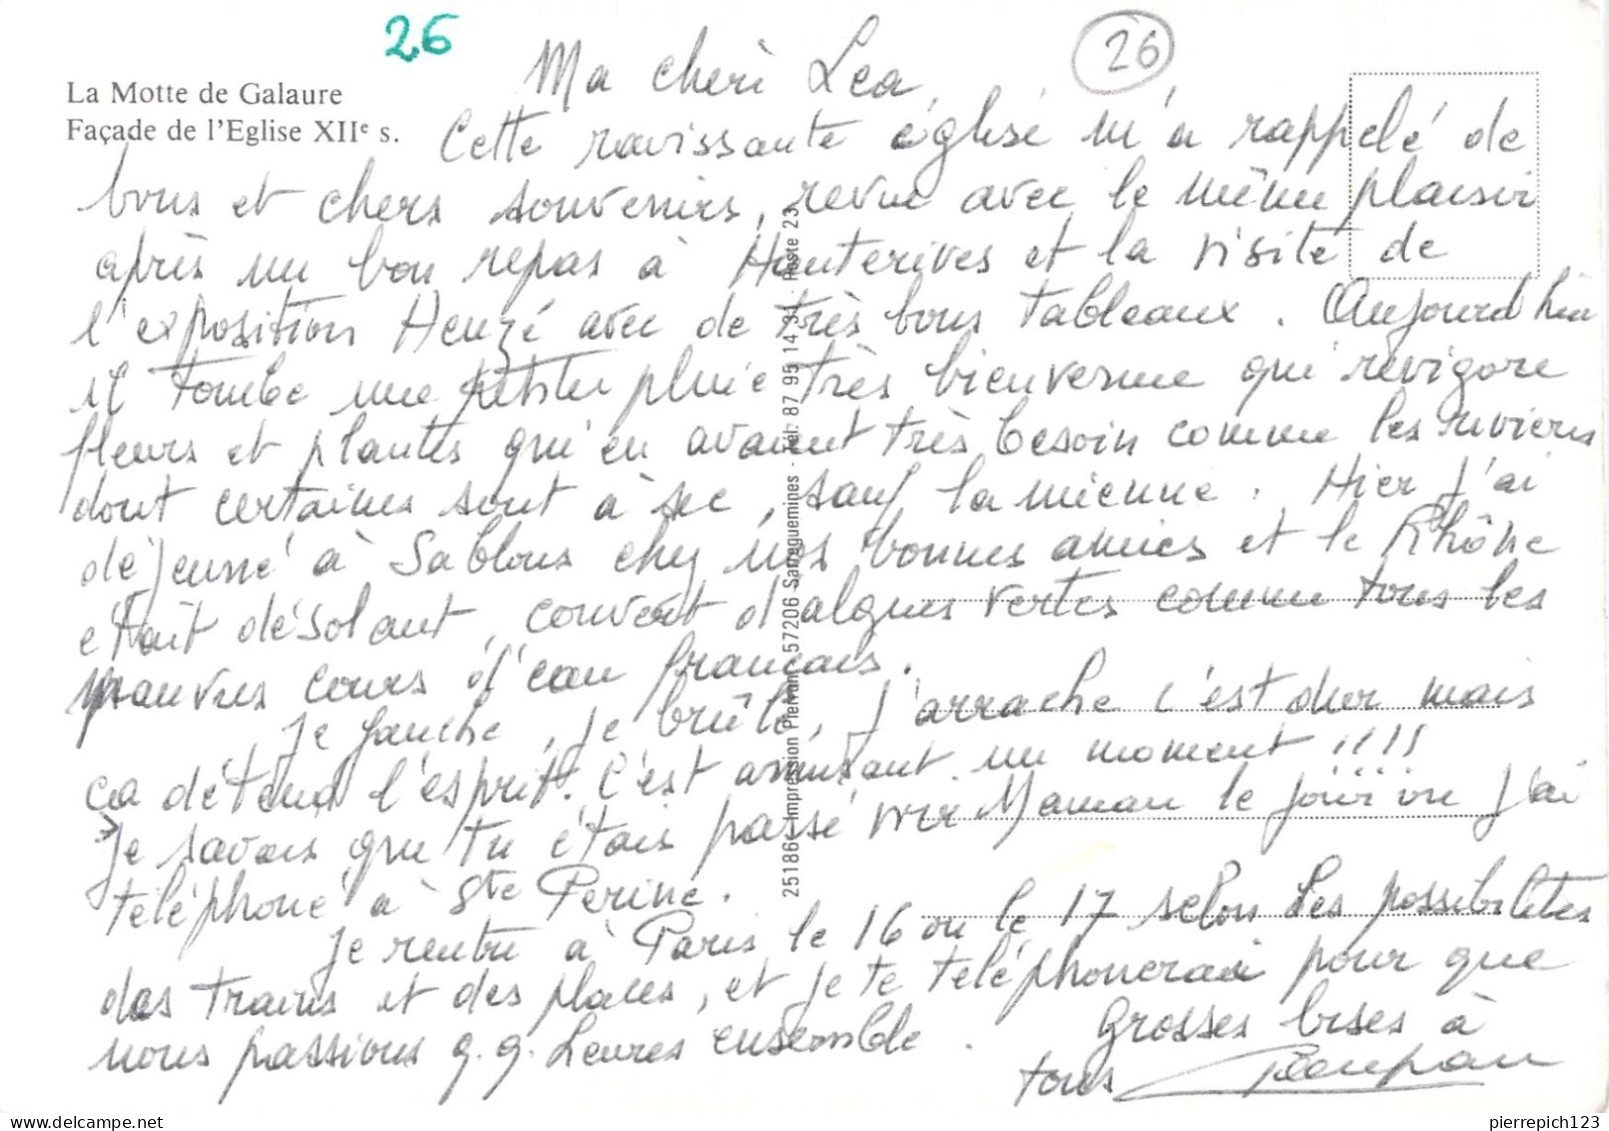 26
26
La Motte de Galaure
Façade de l'Eglise XIIe s.
Ma cheri Lea,
Cette ravissante église m'a rappelé de
bons et chers souvenirs, revue avec le même plaisir
après un bon repas à Hauterives et la visite de
l'exposition Heuzé avec de très bons tableaux. Aujourd'hui
il tombe une petite pluie très bienvenue qui révigore
fleurs et plantes qui en avaient très besoin comme les rivières
dont certaines sont à sec, sauf la mienne. Hier j'ai
déjeuné à Sablons chez nos bonnes amies et le Rhône
était désolant, couvert d'algues vertes comme tous les
pauvres cours d'eau francais.
Je fauche, je brûle, j'arrache c'est dur mais
ca détend l'esprit. C'est amusant un moment !!!!
Je savais que tu étais passé voir Maman le jour ou j'ai
téléphoné à Ste Perine.
Je rentre à Paris le 16 ou le 17 selon les possibilités
des trains et des places, et je te téléphonerai pour que
nous passions q.q. heures ensemble. Grosses bises à
tous
251860 Impression Pierron 57206 Sarreguemines - Tél. 87 95 14 31 - Poste 23
pierrepich123